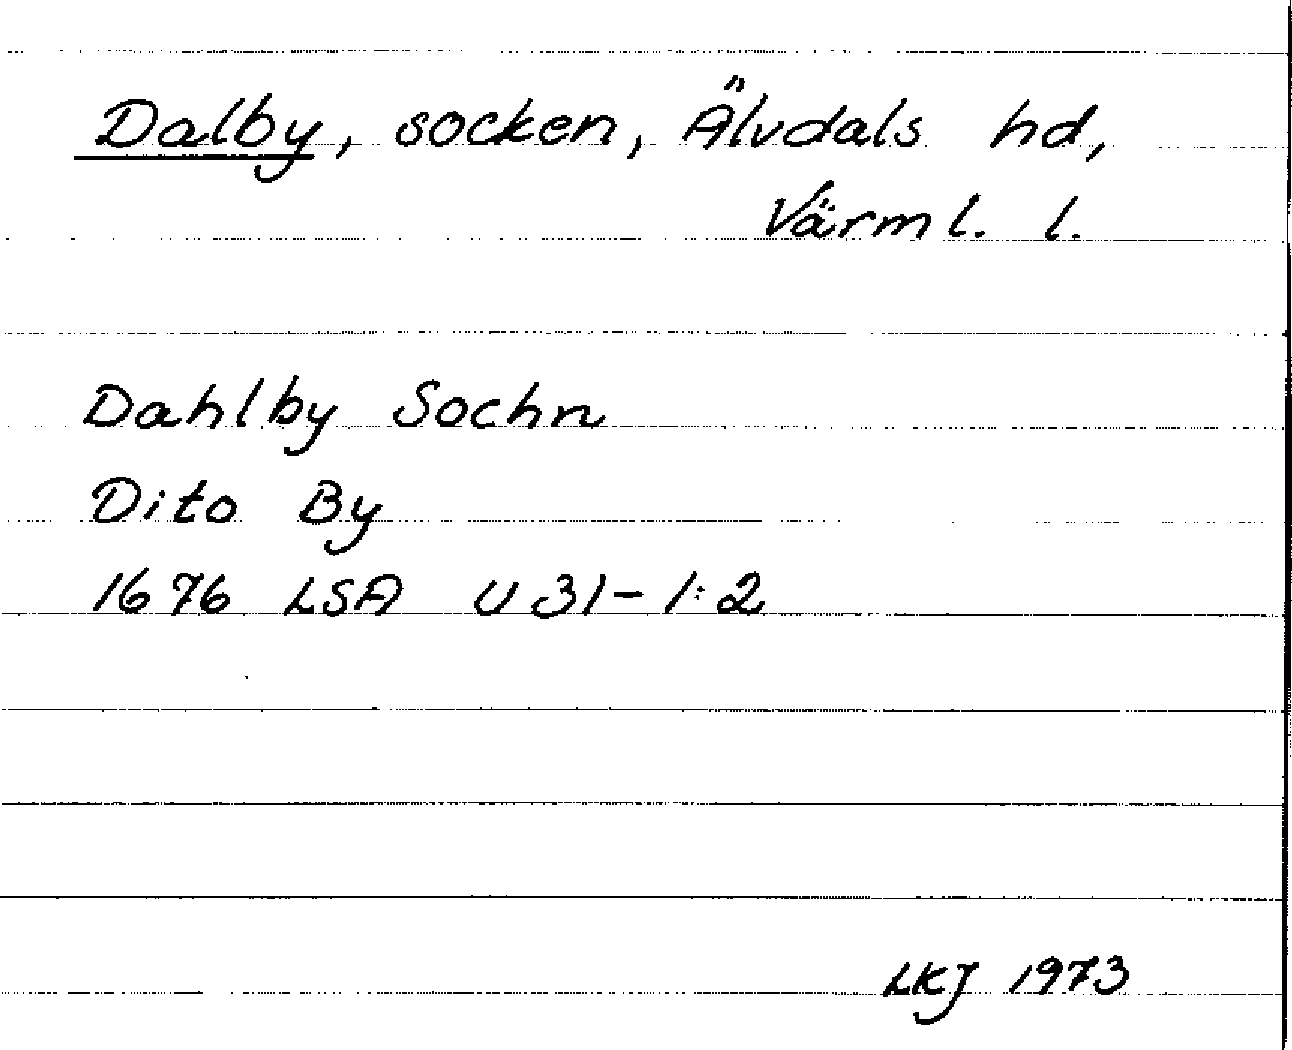 Dalby, socken, Älvdals hd,
Värml. l.
Dahlby Sochn
Dito By
1676 LSA U 31-1:2
LKJ 1973